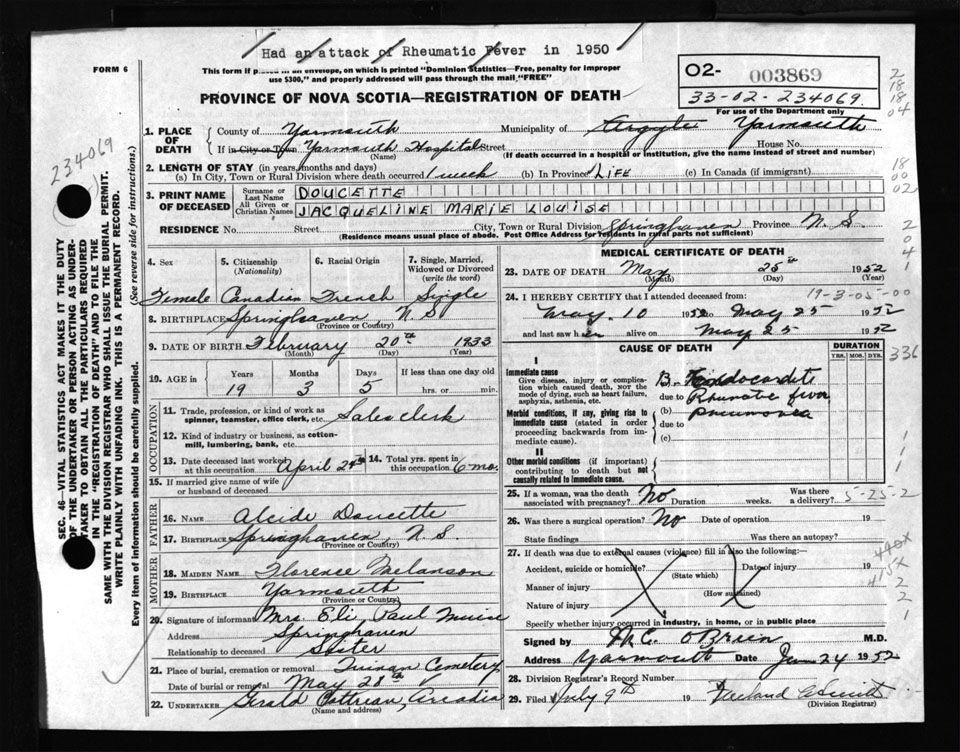 Had an attack of Rheumatic Fever in 1950
FORM 6
This form if placed in an envelope, on which is printed "Dominion Statistics—Free, penalty for improper
use $300," and properly addressed will pass through the mail "FREE"
PROVINCE OF NOVA SCOTIA—REGISTRATION OF DEATH
02- 003869
33-02-234069.
For use of the Department only
2
18
18
04
234069
SEC. 46—VITAL STATISTICS ACT MAKES IT THE DUTY
OF THE UNDERTAKER OR PERSON ACTING AS UNDER-
TAKER TO OBTAIN ALL THE PARTICULARS REQUIRED
IN THE "REGISTRATION OF DEATH" AND TO FILE THE
SAME WITH THE DIVISION REGISTRAR WHO SHALL ISSUE THE BURIAL PERMIT.
WRITE PLAINLY WITH UNFADING INK. THIS IS A PERMANENT RECORD.
Every item of information should be carefully supplied. (See reverse side for instructions.)
1. PLACE OF DEATH
County of Yarmouth Municipality of Argyle Yarmouth
If in City or Town Yarmouth Hospital Street House No.
(Name) (If death occurred in a hospital or institution, give the name instead of street and number)
2. LENGTH OF STAY (in years, months and days)
(a) In City, Town or Rural Division where death occurred 1 week (b) In Province LIFE (c) In Canada (if immigrant)
18
00
02
3. PRINT NAME OF DECEASED
Surname or Last Name DOUCETTE
All Given or Christian Names JACQUELINE MARIE LOUISE
RESIDENCE No. Street City, Town or Rural Division Springhaven Province N.S.
(Residence means usual place of abode. Post Office Address for residents in rural parts not sufficient)
2
0
4
1
4. Sex 5. Citizenship (Nationality) 6. Racial Origin 7. Single, Married, Widowed or Divorced (write the word)
Female Canadian French Single
8. BIRTHPLACE Springhaven N S
(Province or Country)
9. DATE OF BIRTH February 20th 1933
(Month) (Day) (Year)
10. AGE in Years Months Days If less than one day old
19 3 5 hrs. or min.
OCCUPATION
11. Trade, profession, or kind of work as spinner, teamster, office clerk, etc. Sales clerk
12. Kind of industry or business, as cotton-mill, lumbering, bank, etc.
13. Date deceased last worked at this occupation April 24th 14. Total yrs. spent in this occupation 6 mo.
15. If married give name of wife or husband of deceased
FATHER
16. NAME Alcide Doucette
17. BIRTHPLACE Springhaven, N.S.
(Province or Country)
MOTHER
18. MAIDEN NAME Florence Melanson
19. BIRTHPLACE Yarmouth
(Province or Country)
20. Signature of informant Mrs. Eli Paul Muise
Address Springhaven
Relationship to deceased Sister
21. Place of burial, cremation or removal Tuinan Cemetery
Date of burial or removal May 28th
22. UNDERTAKER Gerald Arcadia
(Name and address)
MEDICAL CERTIFICATE OF DEATH
23. DATE OF DEATH May 25th 1952
(Month) (Day) (Year)
24. I HEREBY CERTIFY that I attended deceased from: 19-3-05-00
May. 10 1952 to May 25 1952
and last saw her alive on May 25 1952
CAUSE OF DEATH DURATION
YRS. MOS. DYS.
336
I
Immediate cause
Give disease, injury or complication which caused death, NOT the mode of dying, such as heart failure, asphyxia, asthenia, etc.
B. Endocardite
due to Rhumatic fever
Morbid conditions, if any, giving rise to immediate cause (stated in order proceeding backwards from immediate cause).
(b) Pneumonea
due to
(c)
II
Other morbid conditions (if important) contributing to death but not causally related to immediate cause.
1
1
25. If a woman, was the death associated with pregnancy? No Duration weeks. Was there a delivery? 5-25-2
26. Was there a surgical operation? No Date of operation 19
State findings Was there an autopsy?
27. If death was due to external causes (violence) fill in also the following:—
440x
415x
Accident, suicide or homicide? Date of injury 19
(State which)
Manner of injury
(How sustained)
Nature of injury
2
2
1
Specify whether injury occurred in industry, in home, or in public place
Signed by O'Brien M.D.
Address Yarmouth Date June 24 1952
28. Division Registrar's Record Number
29. Filed July 9th 19
(Division Registrar)